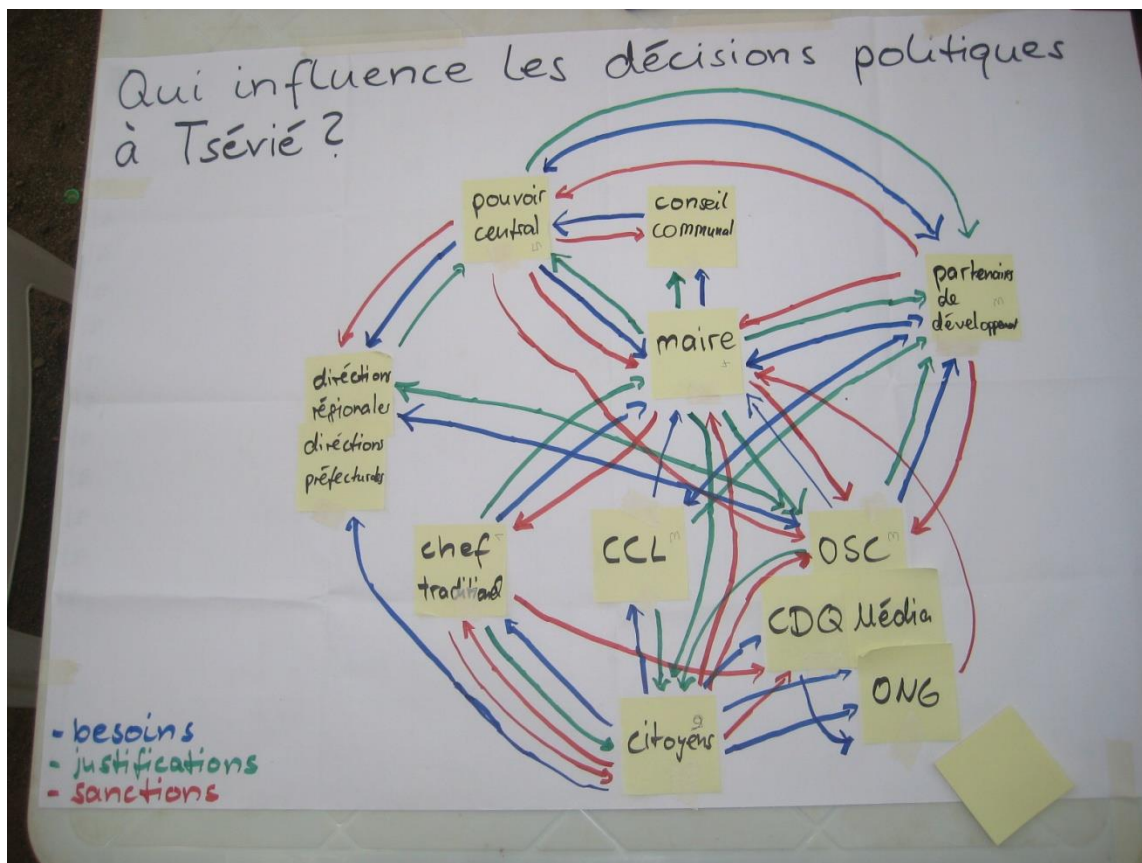 Qui influence les décisions politiques
à Tsévié?
pouvoir
central
conseil
communal
partenaires
de
développement
maire
diréctions
régionales
diréctions
préfecturales
chef
traditionel
CCL
OSC
CDQ Média
ONG
citoyens
- besoins
- justifications
- sanctions